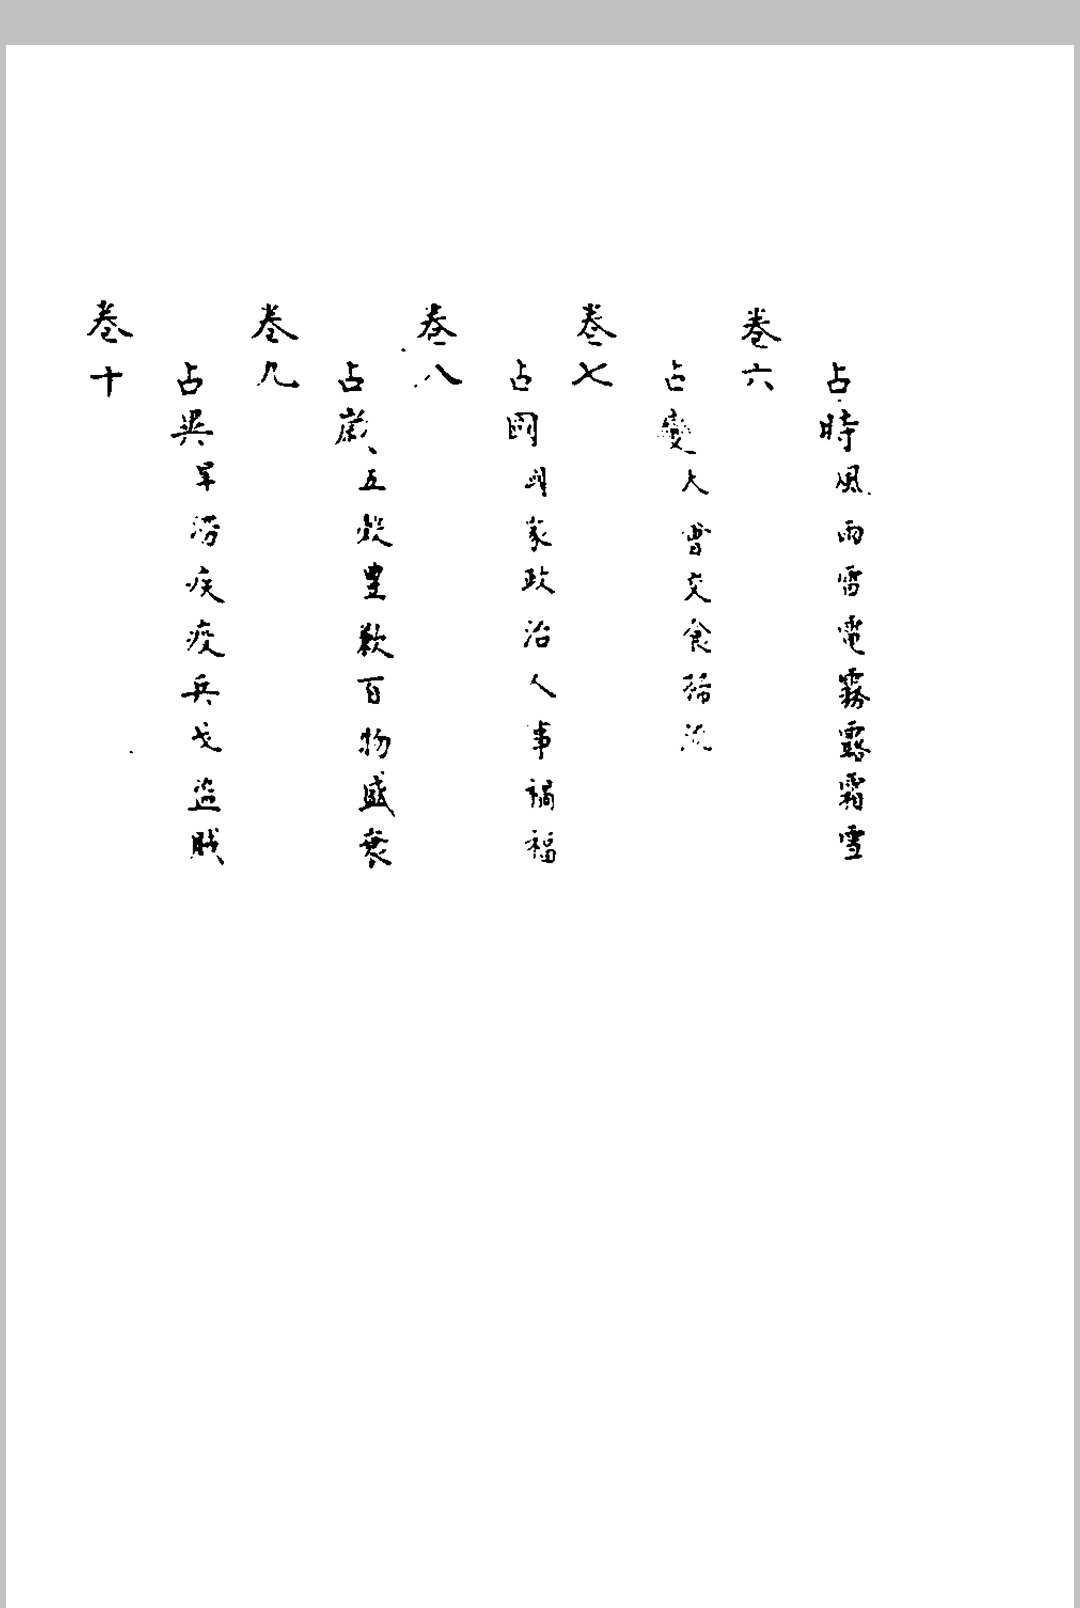 占時風雨雷電霧露霜雪
卷六
占變大曹交食
卷七
占國國家政治人事禍福
卷八
占歲五穀豐歉百物盛衰
卷九
占異旱澇疾疫兵戈盜賊
卷十